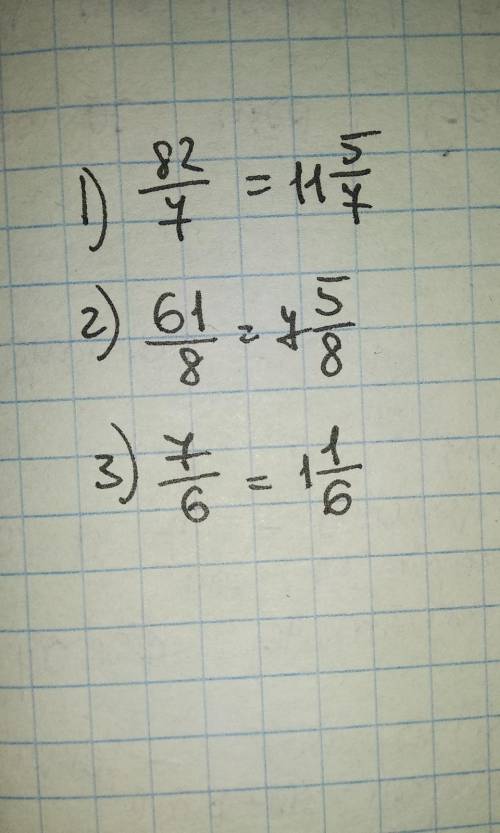 1) 82/7 = 11 5/7
2) 61/8 = 7 5/8
3) 7/6 = 1 1/6